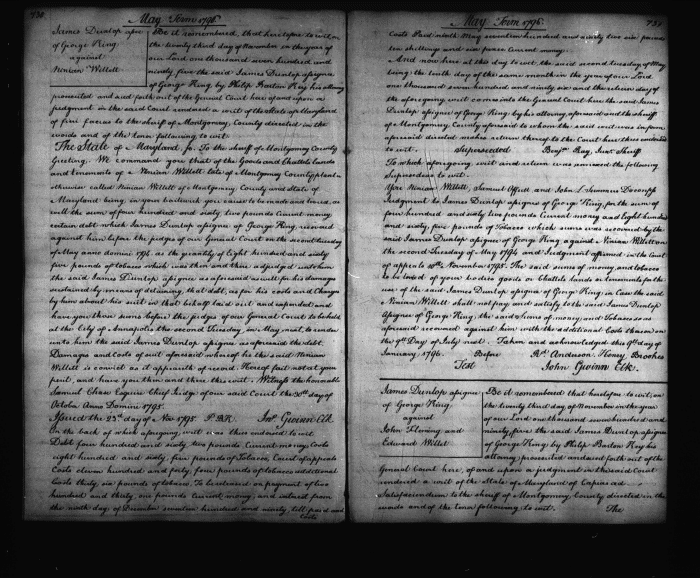 730
May Term 1796
James Dunlop assee
of George King
against
Ninian Willett
Be it remembered, that heretofore to wit on
the twenty third day of November in the year of
our Lord one thousand seven hundred and
ninety five the said James Dunlop assignee
of George King by Philip Barton Key his attorney
presented and said forth out of the General Court here of and upon a
judgment in the said Court rendered a writ of the State of Maryland
of fieri facias to the sheriff of Montgomery County directed in the
words and of the tenor following to wit.
The State of Maryland, ss. To the sheriff of Montgomery County
Greeting. We command you that of the Goods and Chattels lands
and tenements of Ninian Willett late of Montgomery County planter
otherwise called Ninian Willett of Montgomery County and State of
Maryland being in your bailiwick you cause to be made and levied, as
well the sum of four hundred and sixty two pounds Current money
certain debt which James Dunlop assignee of George King recovered
against him before the judges of our General Court on the second tuesday
of May anno domini 1794, as the quantity of Eight hundred and sixty
five pounds of tobacco which was then and there adjudged unto him
the said James Dunlop assignee as aforesaid as well for his damages
sustained by means of detaining that debt, as for his costs and Charges
by him about his suit in that behalf laid out and expended and
have you those sums before the judges of our General Court to be held
at the City of Annapolis the second Tuesday in May next, to render
unto him the said James Dunlop assignee as aforesaid the debt
Damages and Costs of suit aforesaid whereof he the said Ninian
Willett is convict as it appears th of record. Hereof fail not at your
peril, and have you then and there this writ. Witness the honorable
Samuel Chase Esquire Chief Judge of our said Court the day of
October Anno Domini 1795.
Issued the 23rd day of Nov 1795 P. B. K. Jno. Gwinn Clk
On the back of which aforegoing writ was thus indorsed to wit
Debt four hundred and sixty two pounds Current money, Costs
eight hundred and sixty five pounds of Tobacco, Court of appeals
Costs eleven hundred and forty four pounds of tobacco additional
Costs thirty six pounds of tobacco. To be released on payment of two
hundred and thirty one pounds Current money, and interest from
the ninth day of December seventeen hundred and ninety, till paid and
Costs
May Term 1796
731
Costs Paid ninth May seventeen hundred and ninety six six pounds
ten shillings and six pence Current money.
And now here at this day to wit, the said second tuesday of May
being the tenth day of the same month in the year of our Lord
one thousand seven hundred and ninety six and the return day of
the aforegoing writ comes into the General Court here the said James
Dunlop assignee of George King by his attorney, aforesaid and the sheriff
of Montgomery County aforesaid to whom the said writ was in form
aforesaid directed makes return thereof to the Court here thus endorsed
to wit. Superseded Benjn. Ray, Junr. Sheriff
To which aforegoing writ and return was annexed the following
Supersedeas to wit.
You Ninian Willett, Samuel Offutt and John L. Summers Do confess
Judgment to James Dunlop assignee of George King, for the sum of
four hundred and sixty two pounds Current money and Eight hundred
and sixty five pounds of Tobacco which sums was recovered by the
said James Dunlop assignee of George King against Ninian Willett on
the second Tuesday of May 1794 and Judgment affirmed in the Court
of appeals November 1795. The said sums of money and tobacco
to be levied of your bodies goods or chattels lands or tenements for the
use of the said James Dunlop assignee of George King in Case the said
Ninian Willett shall not pay and satisfy the said James Dunlop
Assignee of George King, the said sums of money and Tobacco so as
aforesaid recovered against him with the additional Costs thereon on
the 9th Day of July next. Taken and acknowledged this 9th day of
January 1796. Before Rd. Anderson. Henry Brookes
Test John Gwinn Clk.
James Dunlop assignee
of George King
against
John Fleming and
Edward Willet
Be it remembered that heretofore to wit, on
the twenty third day of November in the year
of our Lord one thousand seven hundred and
ninety five the said James Dunlop assignee
of George King by Philip Barton Key his
attorney presented and sued forth out of the
General Court here, of and upon a judgment in the said Court
rendered a writ of the State of Maryland of Capias ad
Satisfaciendum to the sheriff of Montgomery County directed in the
words and of the tenor following to wit. The